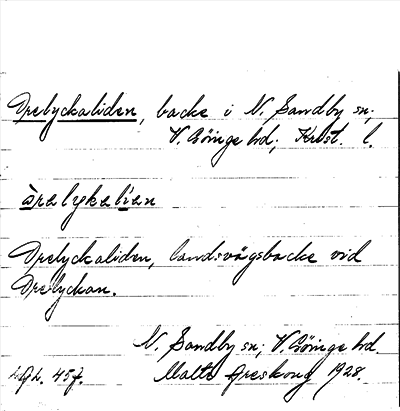 Örelyckaliden, backe i N. Sandby sn;
V. Göinge hd; Krist. l.
òralykalian
Örelyckaliden, landsvägsbacke vid
Örelyckan.
N. Sandby sn; V. Göinge hd.
Malte Areskoug 1928.
457.